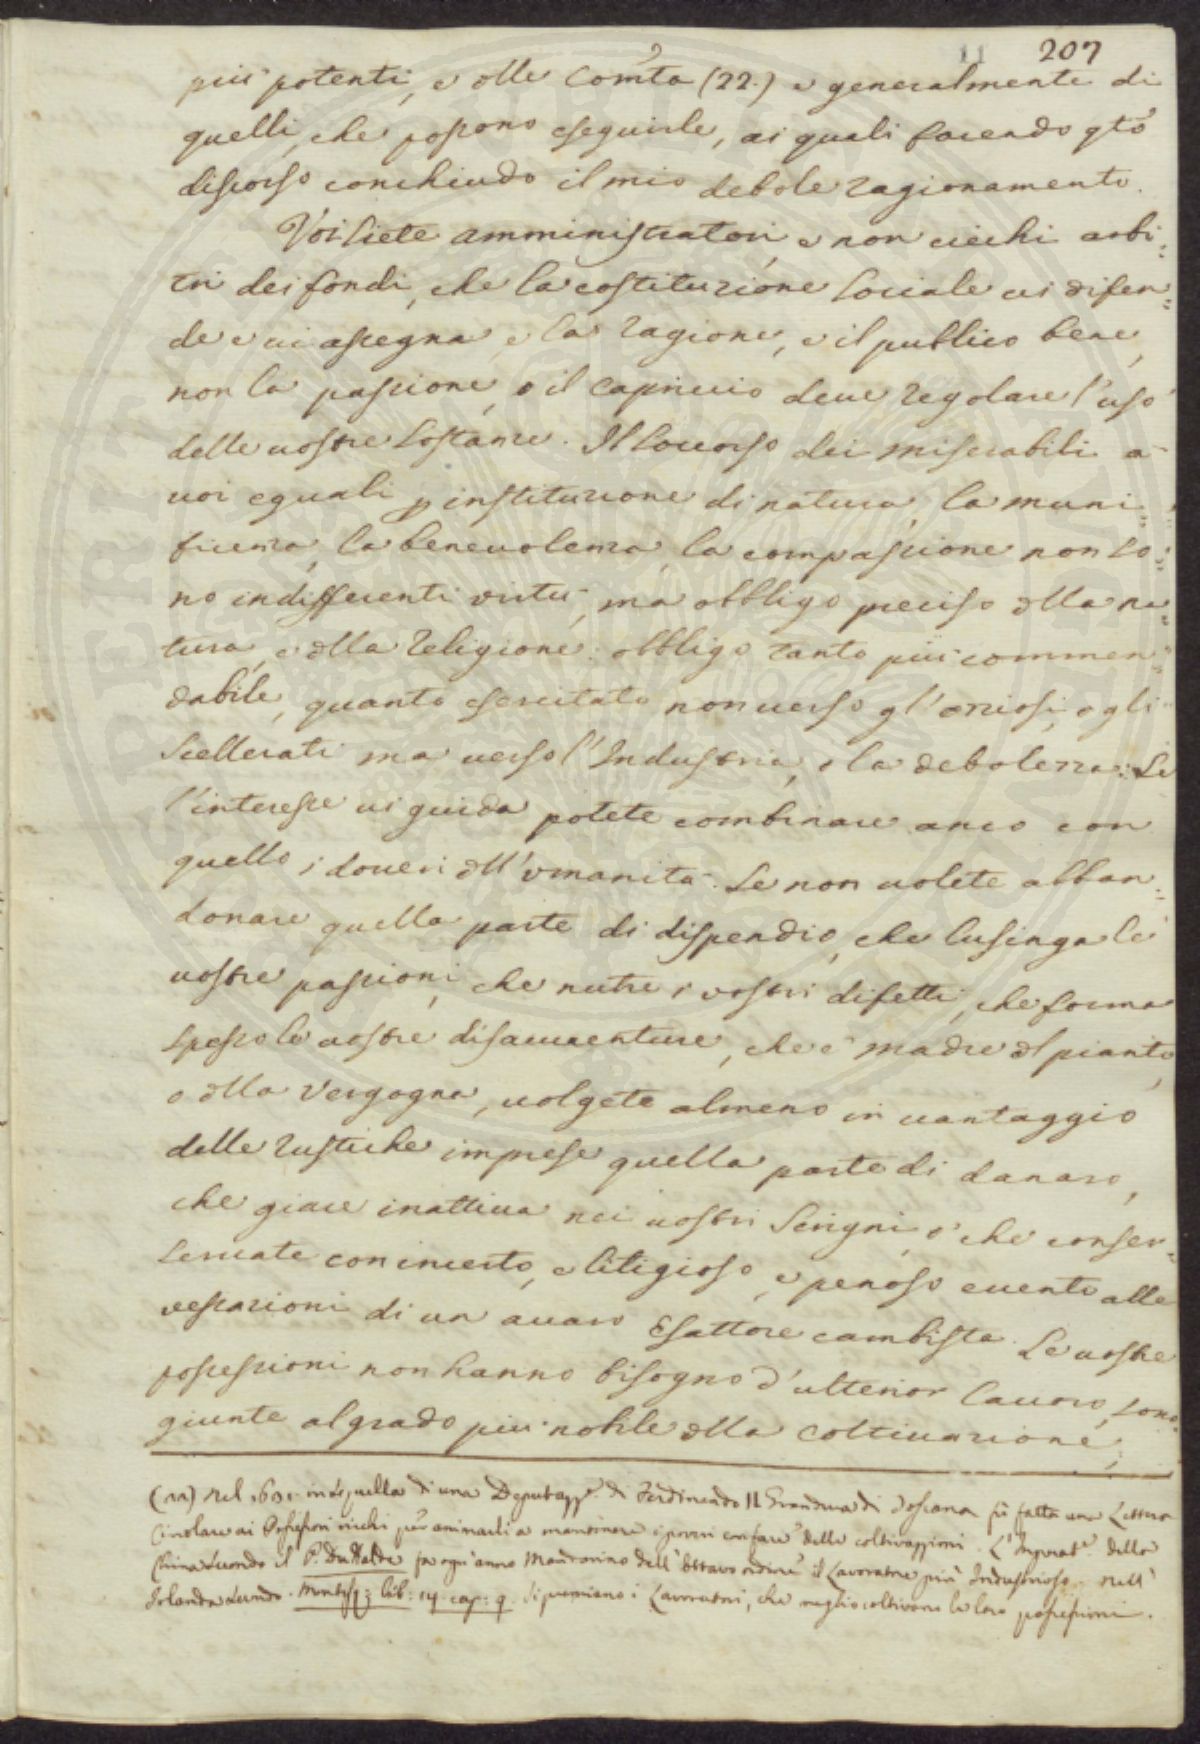 11 207
più potenti, e dlle Com̃tà (22.) e generalmente di
quelli, che possono eseguirle, ai quali facendo qto
discorso conchiudo il mio debole ragionamento.
Voi siete amministratori, e non ciechi arbi:
tri dei fondi, che la costituzione sociale vi difen=
de e vi assegna, e la ragione, e il publico bene,
non la passione, o il capriccio deve regolare l'uso
delle vostre sostanze. Il soccorso dei miserabili a
voi eguali p instituzione di natura, la muni=
ficenza, la benevolenza, la compassione non so=
no indifferenti virtù, ma obbligo preciso dlla na=
tura, e dlla religione: obbligo tanto più commen=
dabile, quanto esercitato non verso gl'oziosi, o gli
scellerati ma verso l'Industria, e la debolezza: Se
l'interesse vi guida potete combinare anco con
quello i doveri dll'umanità. Se non volete abban=
donare quella parte di dispendio, che lusinga le
vostre passioni, che nutre i vostri difetti, che forma
spesso le vostre disavventure, che è madre dl pianto,
e dlla vergogna, volgete almeno in vantaggio
delle rustiche imprese quella parte di danaro,
che giace inattiva nei vostri scrigni, o che conser=
servate con incerto, e litigioso, e penoso evento alle
vessazioni di un avaro Esattore cambista. Le vostre
possessioni non hanno bisogno d'ulterior lavoro, sono
giunte al grado più nobile dlla coltivazione,
(22) Nel 1691. in sequella di una Deputazze. di Ferdinando II Granduca di Toscana fù fatta una Lettera
Circolare ai Possessori ricchi per animarli a mantenere i poveri con fare delle coltivazzioni. L'Imperate. della
China secondo il P. Du Halde fa ogni anno Mandarino dell'ottavo ordine il Lavoratore più Industrioso. Nell'
Irlanda secondo Montesq: lib: 14 cap: 9. si premiano i Lavoratori, che meglio coltivano le loro possessioni.